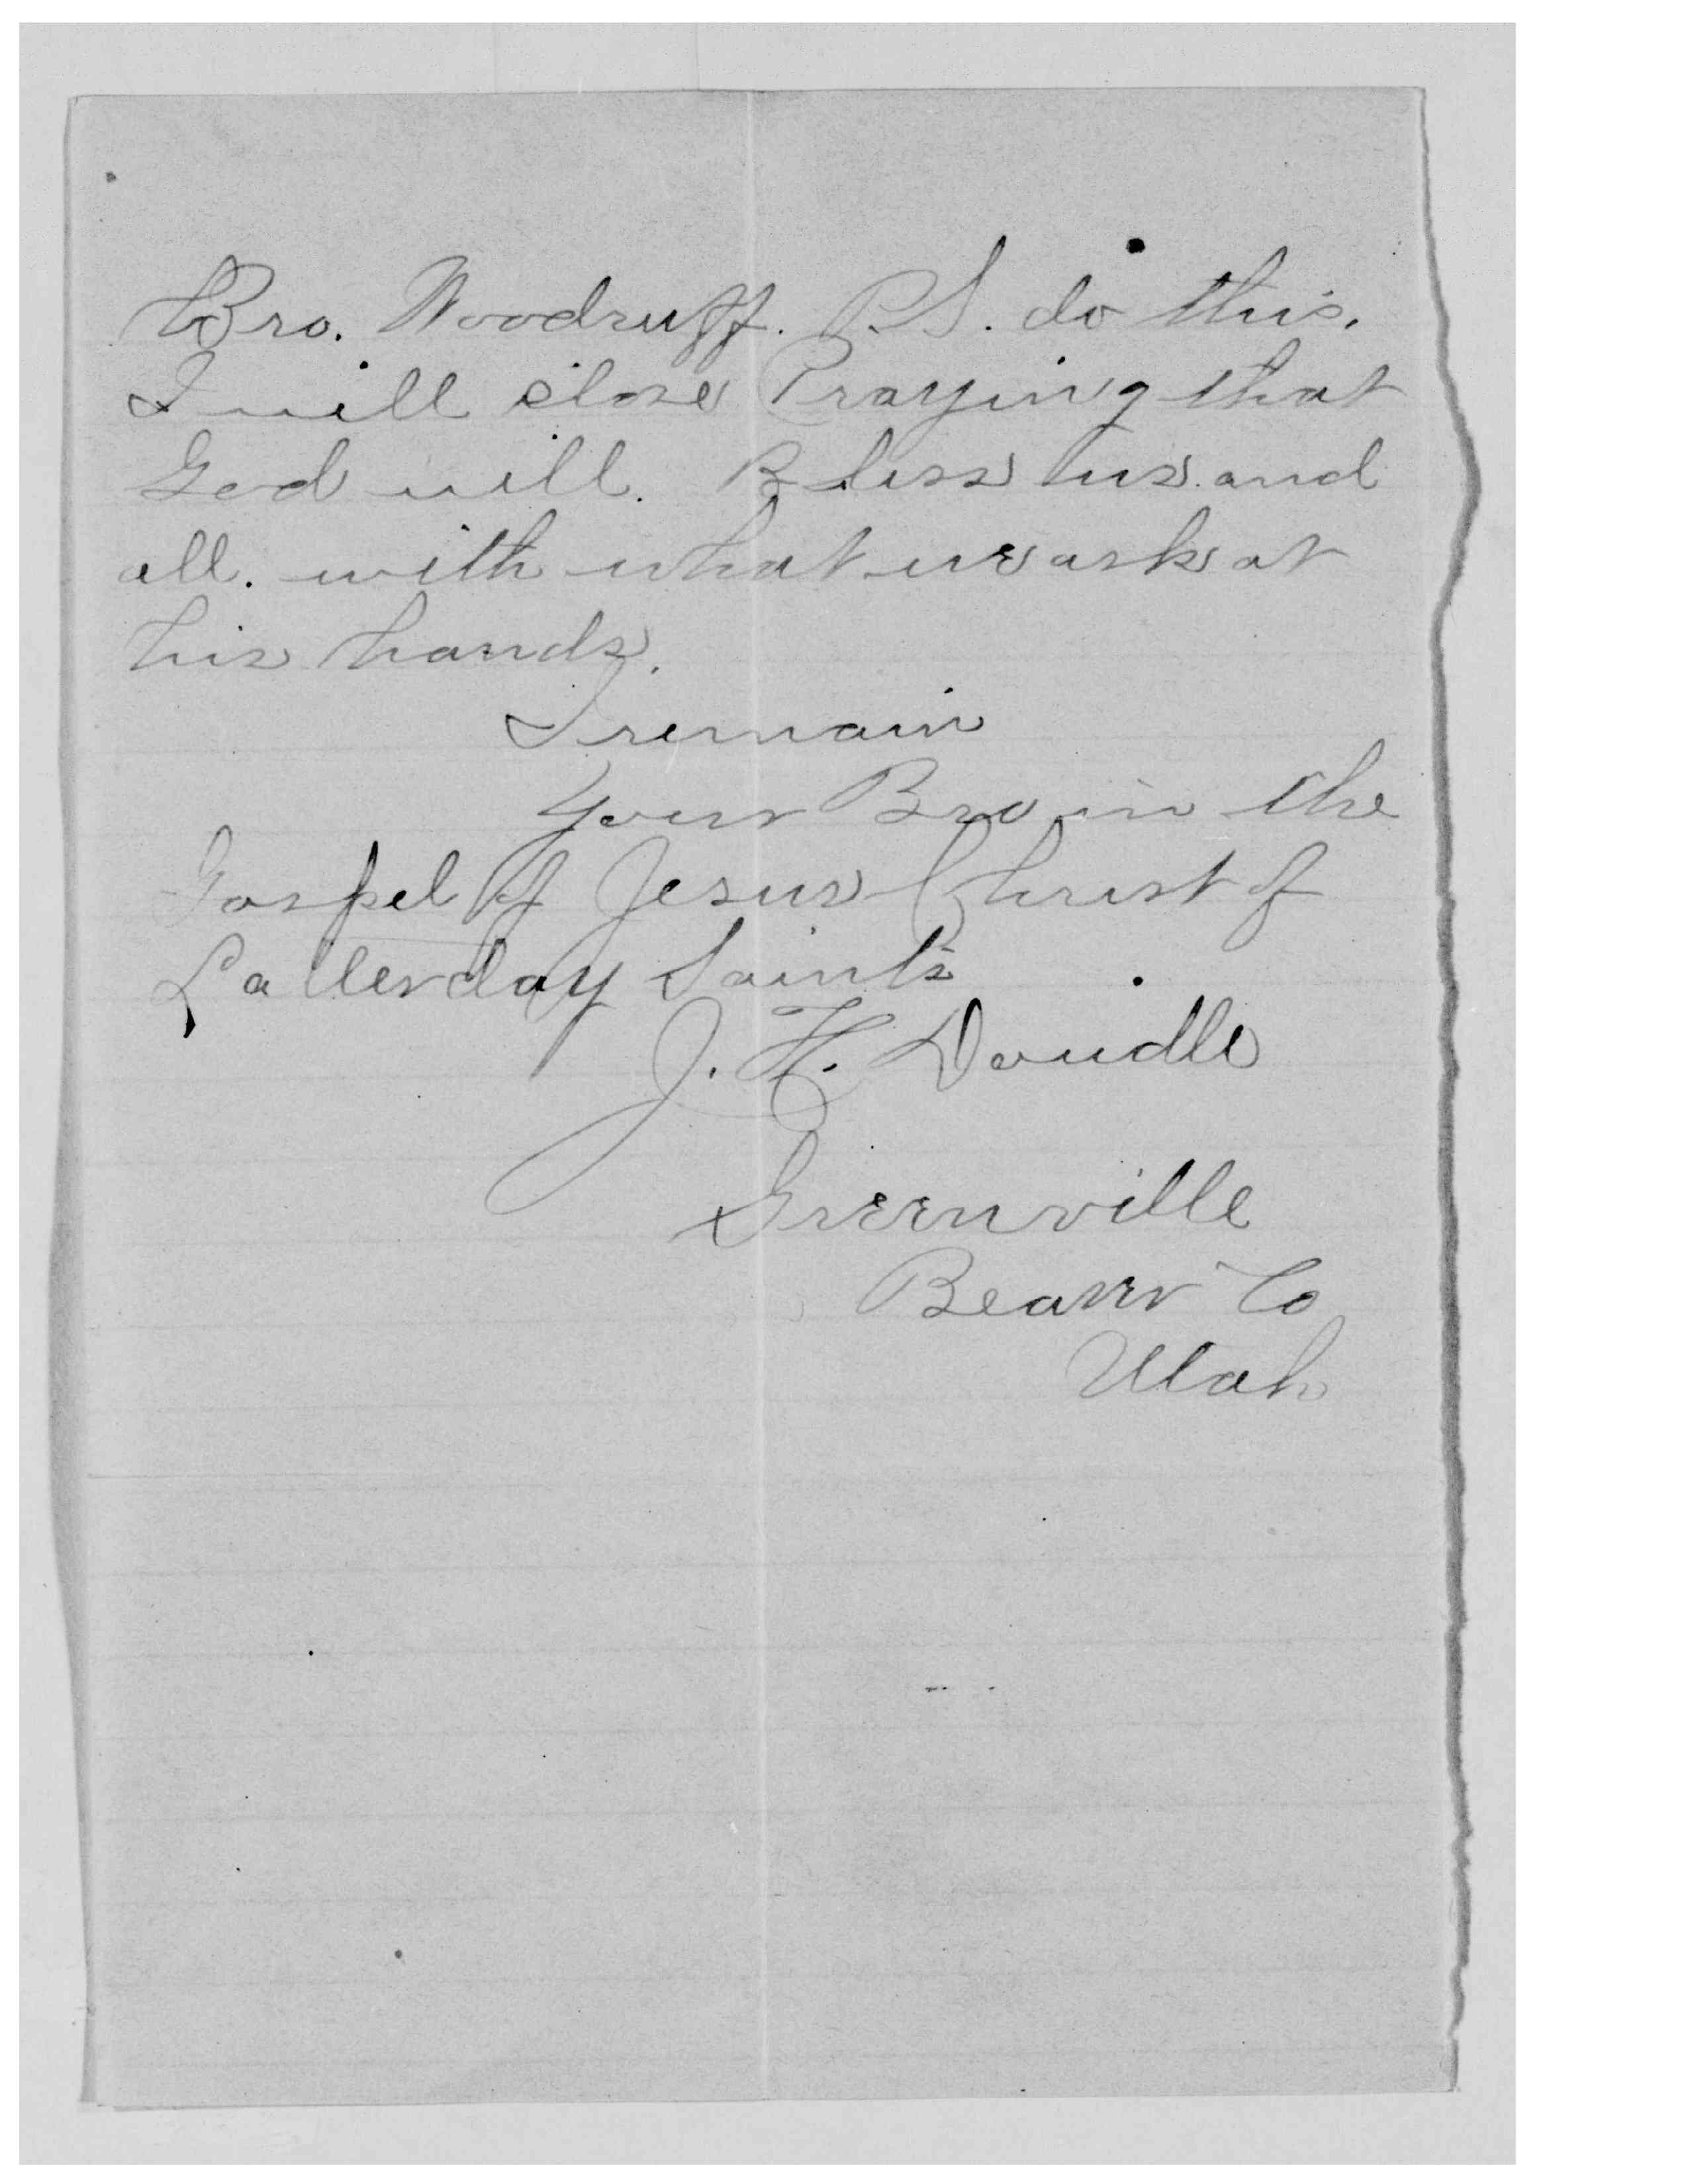 Bro. Woodruff. P.S. do this.
I will close Praying that
God will. Bless us and
all. with what we ask at
his hands.
I remain
Your Bro in the
Gospel of Jesus Christ of
Latterday Saints
J. H. Doudle
Greenville
Beaver Co
Utah